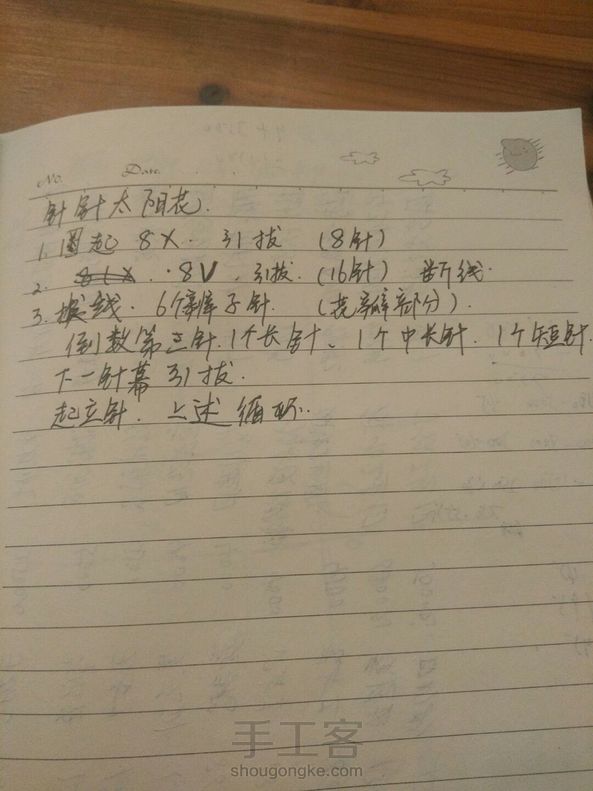 No. Date.
针针太阳花.
1. 圈起 8X. 引拔 (8针)
2. 8V. 引拔. (16针) 断线.
3. 接线. 6个辫子针. (花瓣部分).
倒数第三针. 1个长针、1个中长针. 1个短针.
下一针幕 引拔.
起立针. 上述循环.
手工客
shougongke.com